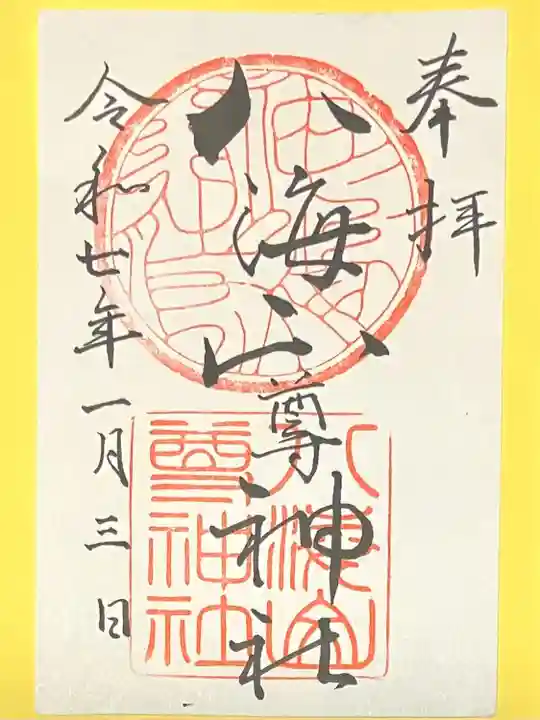 奉拝
八海山尊神社
令和七年一月三日
八海山
尊神社